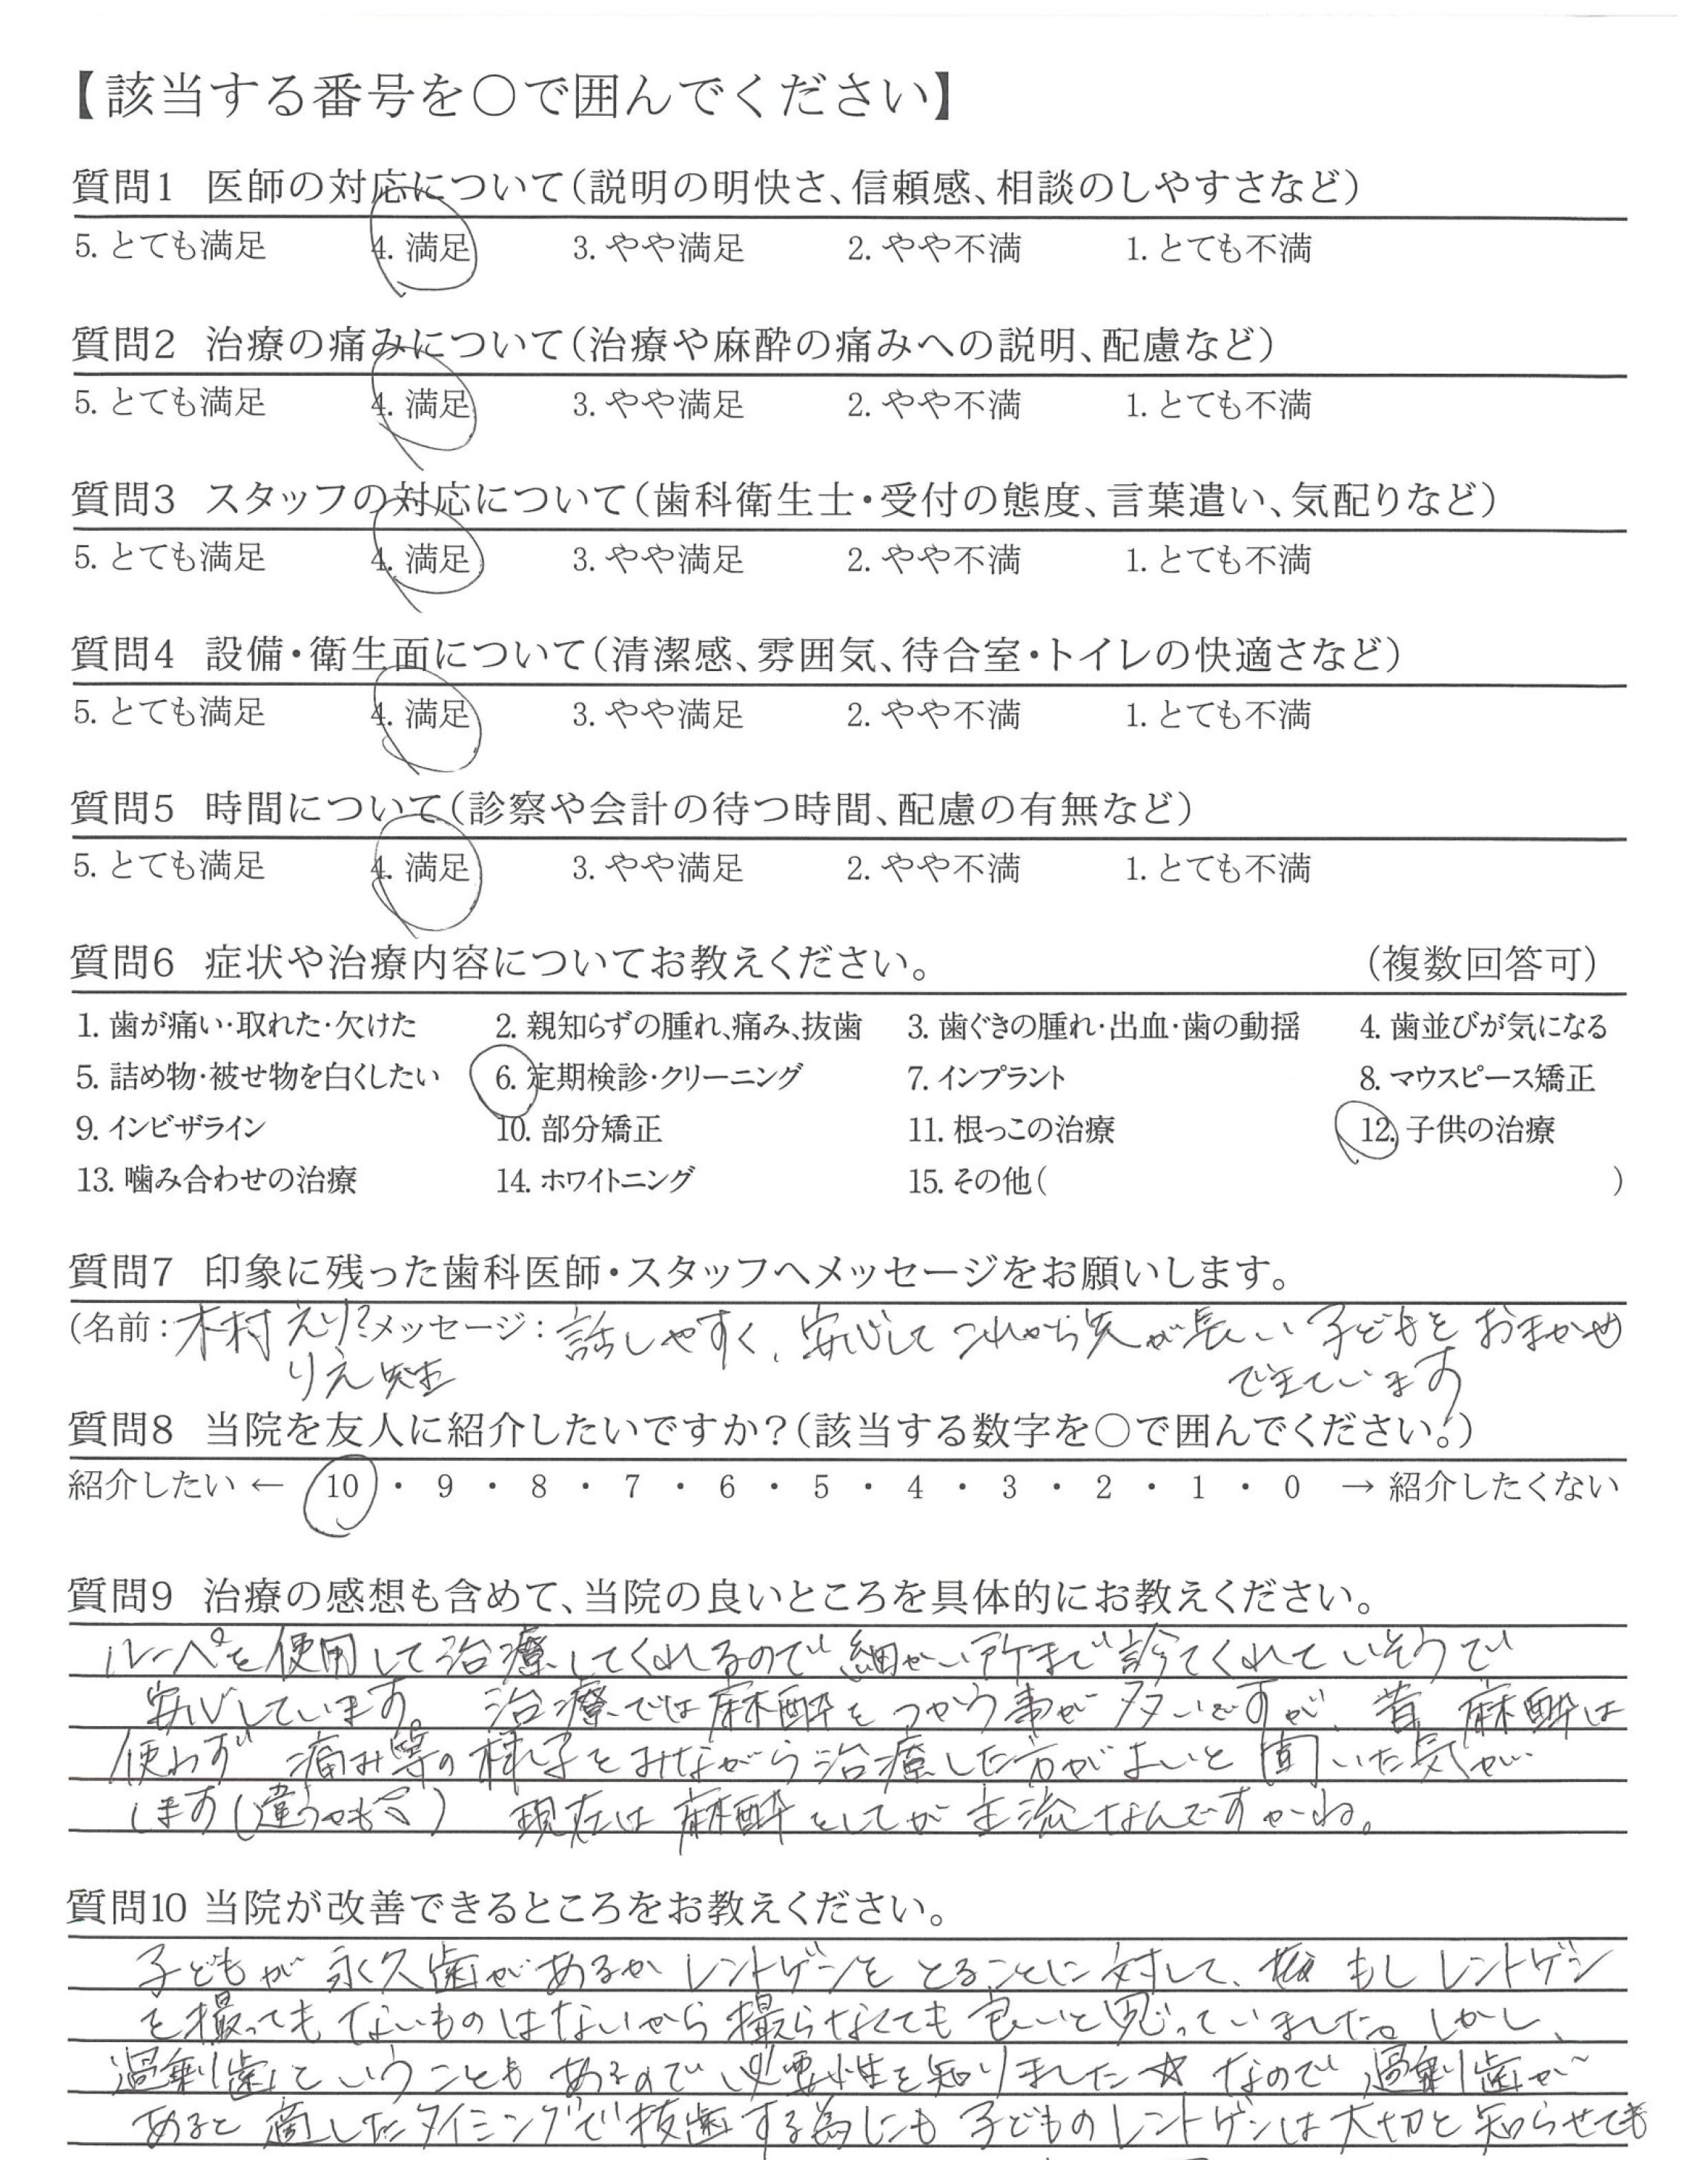 【該当する番号を○で囲んでください】
質問1 医師の対応について(説明の明快さ、信頼感、相談のしやすさなど)
5. とても満足 4. 満足 3. やや満足 2. やや不満 1. とても不満
質問2 治療の痛みについて(治療や麻酔の痛みへの説明、配慮など)
5. とても満足 4. 満足 3. やや満足 2. やや不満 1. とても不満
質問3 スタッフの対応について(歯科衛生士・受付の態度、言葉遣い、気配りなど)
5. とても満足 4. 満足 3. やや満足 2. やや不満 1. とても不満
質問4 設備・衛生面について(清潔感、雰囲気、待合室・トイレの快適さなど)
5. とても満足 4. 満足 3. やや満足 2. やや不満 1. とても不満
質問5 時間について(診察や会計の待つ時間、配慮の有無など)
5. とても満足 4. 満足 3. やや満足 2. やや不満 1. とても不満
質問6 症状や治療内容についてお教えください。 (複数回答可)
1. 歯が痛い・取れた・欠けた 2. 親知らずの腫れ、痛み、抜歯 3. 歯ぐきの腫れ・出血・歯の動揺 4. 歯並びが気になる
5. 詰め物・被せ物を白くしたい 6. 定期検診・クリーニング 7. インプラント 8. マウスピース矯正
9. インビザライン 10. 部分矯正 11. 根っこの治療 12. 子供の治療
13. 噛み合わせの治療 14. ホワイトニング 15. その他( )
質問7 印象に残った歯科医師・スタッフへメッセージをお願いします。
(名前：木村 えり? メッセージ：話しやすく、安心して これから先が長い 子どもを おまかせ
りえ先生 できています
質問8 当院を友人に紹介したいですか？(該当する数字を○で囲んでください。)
紹介したい ← 10 ・ 9 ・ 8 ・ 7 ・ 6 ・ 5 ・ 4 ・ 3 ・ 2 ・ 1 ・ 0 → 紹介したくない
質問9 治療の感想も含めて、当院の良いところを具体的にお教えください。
ルーペを使用して治療してくれるので細かい所まで診てくれていそうで
安心しています。 治療では麻酔をつかう事が多いですが、昔 麻酔は
使わず 痛み等の様子をみながら治療した方がよいと聞いた気が
します(違うかも) 現在は麻酔をしてが主流なんですかね。
質問10 当院が改善できるところをお教えください。
子どもが永久歯があるかレントゲンをとることに対して、 もしレントゲン
を撮ってもないものはないから撮らなくても良いと思っていました。しかし、
過剰歯ということもあるので必要性を知りました☆ なので過剰歯が
あると適したタイミングで抜歯する為にも子どものレントゲンは大切と知らせても